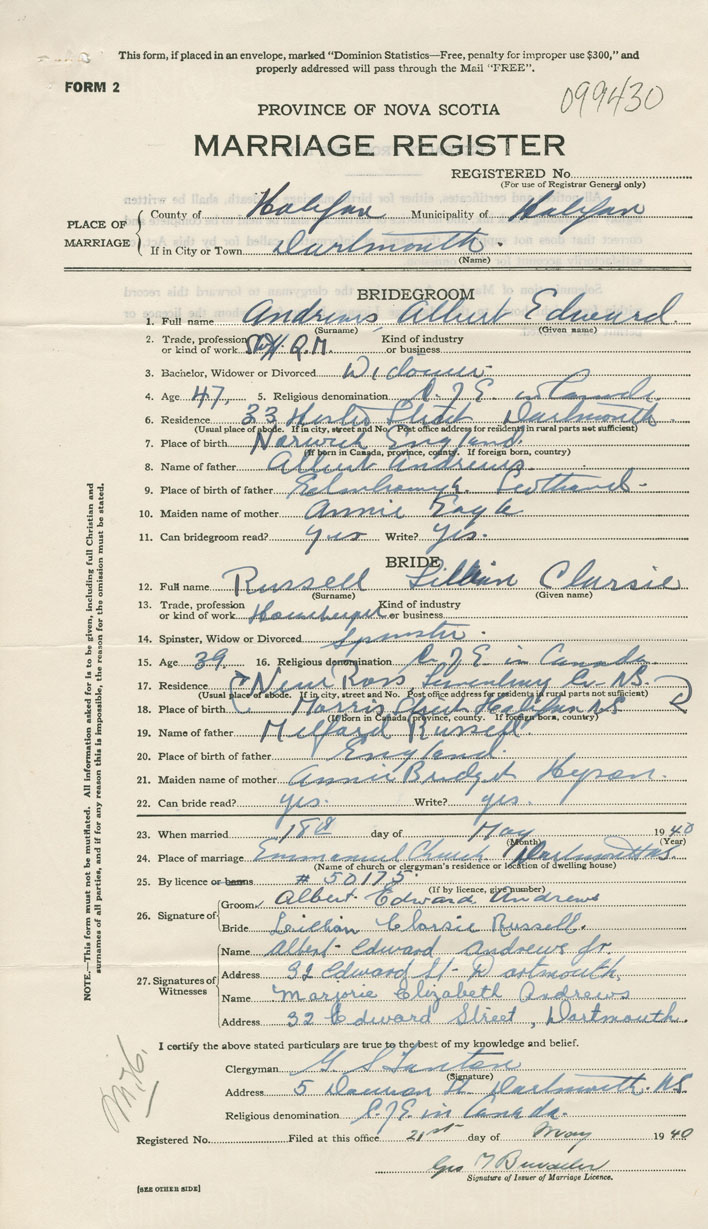 This form, if placed in an envelope, marked "Dominion Statistics—Free, penalty for improper use $300," and
properly addressed will pass through the Mail "FREE".
FORM 2
099430
PROVINCE OF NOVA SCOTIA
MARRIAGE REGISTER
REGISTERED No.
(For use of Registrar General only)
PLACE OF MARRIAGE
County of Halifax Municipality of Halifax
If in City or Town Dartmouth.
(Name)
BRIDEGROOM
1. Full name Andrews Albert Edward.
(Surname) (Given name)
2. Trade, profession or kind of work Q.M. Kind of industry or business
3. Bachelor, Widower or Divorced Widower
4. Age 47, 5. Religious denomination C. of E. in Canada
6. Residence 33 Street Dartmouth
(Usual place of abode. If in city, street and No. Post office address for residents in rural parts not sufficient)
7. Place of birth Norwich England.
(If born in Canada, province, county. If foreign born, country)
8. Name of father Albert Andrews.
9. Place of birth of father Scotland.
10. Maiden name of mother Annie Eagle
11. Can bridegroom read? yes Write? yes.
BRIDE
12. Full name Russell Lillian Clarsie
(Surname) (Given name)
13. Trade, profession or kind of work Housekeeper Kind of industry or business
14. Spinster, Widow or Divorced Spinster.
15. Age 39, 16. Religious denomination C. of E. in Canada
17. Residence New Ross, Lunenburg Co. N.S.
(Usual place of abode. If in city, street and No. Post office address for residents in rural parts not sufficient)
18. Place of birth Morris Street Halifax N.S.
(If born in Canada, province, county. If foreign born, country)
19. Name of father Russell
20. Place of birth of father England.
21. Maiden name of mother Annie Bridget
22. Can bride read? yes. Write? yes.
23. When married 18th day of May 1940
(Month) (Year)
24. Place of marriage Emmanuel Church Dartmouth N.S.
(Name of church or clergyman's residence or location of dwelling house)
25. By licence or banns # 50175
(If by licence, give number)
26. Signature of
Groom Albert Edward Andrews
Bride Lillian Clarsie Russell.
27. Signatures of Witnesses
Name Albert Edward Andrews Jr.
Address 32 Edward St- Dartmouth.
Name Marjorie Elizabeth Andrews
Address 32 Edward Street, Dartmouth.
I certify the above stated particulars are true to the best of my knowledge and belief.
Clergyman
(Signature)
Address 5 Dawson St. Dartmouth. N.S.
Religious denomination C. of E. in Canada.
Registered No. Filed at this office 21st day of May 1940
Signature of Issuer of Marriage Licence.
[SEE OTHER SIDE]
NOTE.—This form must not be mutilated. All information asked for is to be given, including full Christian and
surnames of all parties, and if for any reason this is impossible, the reason for the omission must be stated.